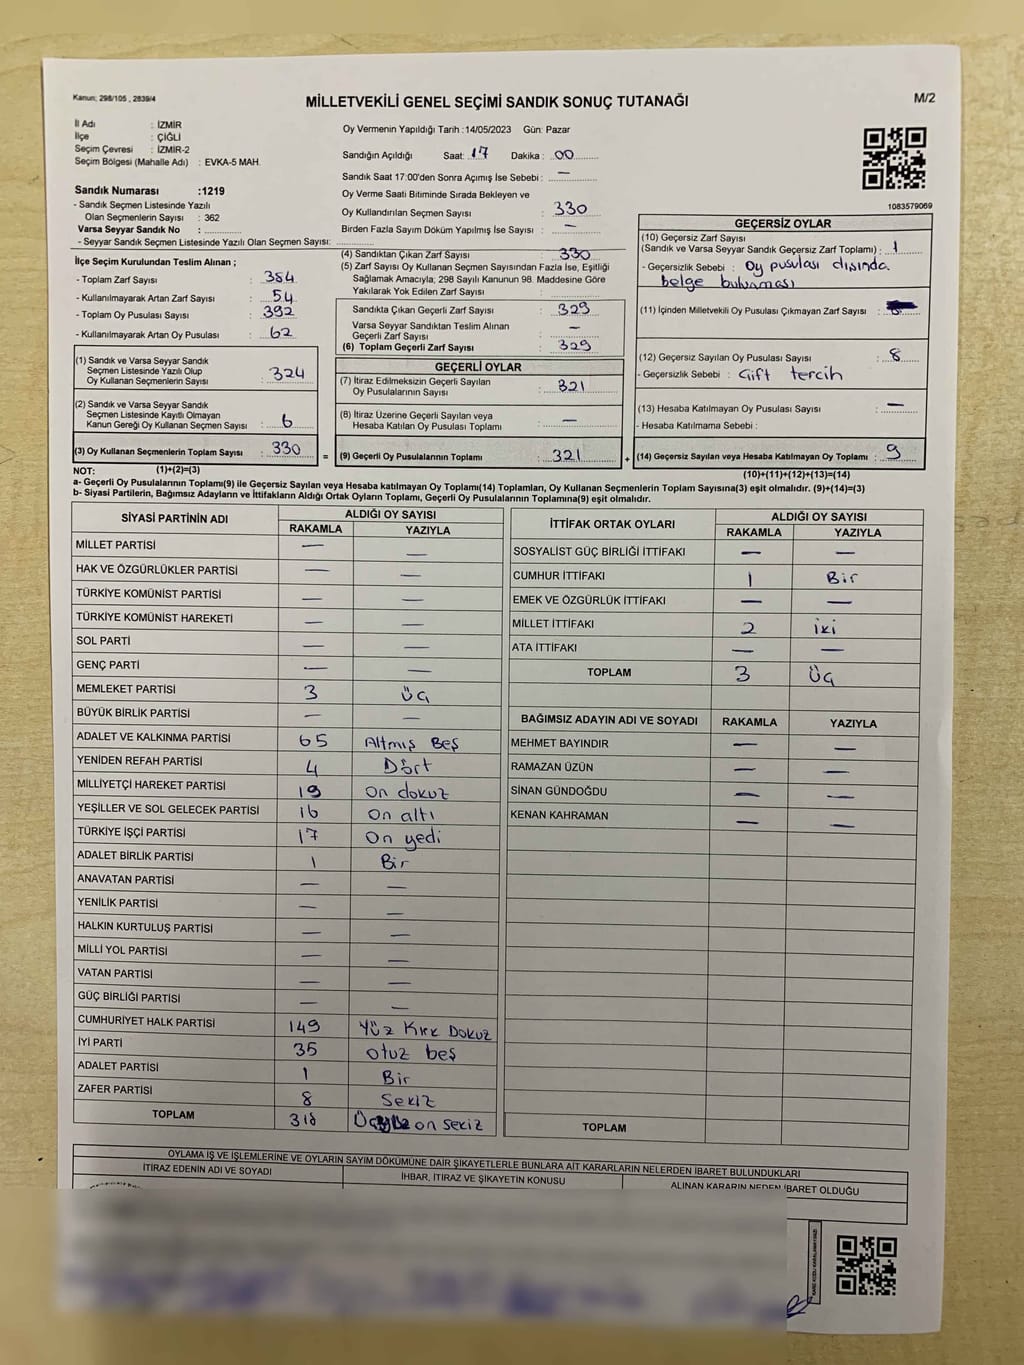 Kanun; 298/105 , 2839/4
MİLLETVEKİLİ GENEL SEÇİMİ SANDIK SONUÇ TUTANAĞI
M/2
İl Adı : İZMİR
İlçe : ÇİĞLİ
Seçim Çevresi : İZMİR-2
Seçim Bölgesi (Mahalle Adı) : EVKA-5 MAH.
Sandık Numarası :1219
- Sandık Seçmen Listesinde Yazılı
Olan Seçmenlerin Sayısı : 362
Varsa Seyyar Sandık No :
- Seyyar Sandık Seçmen Listesinde Yazılı Olan Seçmen Sayısı:
Oy Vermenin Yapıldığı Tarih :14/05/2023 Gün: Pazar
Sandığın Açıldığı Saat: 17 Dakika : 00
Sandık Saat 17:00'den Sonra Açımış İse Sebebi : —
Oy Verme Saati Bitiminde Sırada Bekleyen ve
Oy Kullandırılan Seçmen Sayısı : 330
Birden Fazla Sayım Döküm Yapılmış İse Sayısı : —
1083579069
İlçe Seçim Kurulundan Teslim Alınan ;
- Toplam Zarf Sayısı : 384
- Kullanılmayarak Artan Zarf Sayısı : 54
- Toplam Oy Pusulası Sayısı : 392
- Kullanılmayarak Artan Oy Pusulası : 62
(1) Sandık ve Varsa Seyyar Sandık
Seçmen Listesinde Yazılı Olup
Oy Kullanan Seçmenlerin Sayısı : 324
(2) Sandık ve Varsa Seyyar Sandık
Seçmen Listesinde Kayıtlı Olmayan
Kanun Gereği Oy Kullanan Seçmen Sayısı : 6
(3) Oy Kullanan Seçmenlerin Toplam Sayısı : 330
(4) Sandıktan Çıkan Zarf Sayısı : 330
(5) Zarf Sayısı Oy Kullanan Seçmen Sayısından Fazla İse, Eşitliği
Sağlamak Amacıyla; 298 Sayılı Kanunun 98. Maddesine Göre
Yakılarak Yok Edilen Zarf Sayısı :
Sandıkta Çıkan Geçerli Zarf Sayısı : 329
Varsa Seyyar Sandıktan Teslim Alınan
Geçerli Zarf Sayısı : —
(6) Toplam Geçerli Zarf Sayısı : 329
GEÇERLİ OYLAR
(7) İtiraz Edilmeksizin Geçerli Sayılan
Oy Pusulalarının Sayısı : 321
(8) İtiraz Üzerine Geçerli Sayılan veya
Hesaba Katılan Oy Pusulası Toplamı : —
= (9) Geçerli Oy Pusulalarının Toplamı : 321 +
GEÇERSİZ OYLAR
(10) Geçersiz Zarf Sayısı
(Sandık ve Varsa Seyyar Sandık Geçersiz Zarf Toplamı) : 1
- Geçersizlik Sebebi : Oy pusulası dışında.
belge bulunması
(11) İçinden Milletvekili Oy Pusulası Çıkmayan Zarf Sayısı :
(12) Geçersiz Sayılan Oy Pusulası Sayısı : 8
- Geçersizlik Sebebi : Çift tercih
(13) Hesaba Katılmayan Oy Pusulası Sayısı : —
- Hesaba Katılmama Sebebi :
(14) Geçersiz Sayılan veya Hesaba Katılmayan Oy Toplamı : 9
NOT: (1)+(2)=(3)
(10)+(11)+(12)+(13)=(14)
a- Geçerli Oy Pusulalarının Toplamı(9) ile Geçersiz Sayılan veya Hesaba Katılmayan Oy Toplamı(14) Toplamları, Oy Kullanan Seçmenlerin Toplam Sayısına(3) eşit olmalıdır. (9)+(14)=(3)
b- Siyasi Partilerin, Bağımsız Adayların ve İttifakların Aldığı Ortak Oyların Toplamı, Geçerli Oy Pusulalarının Toplamına(9) eşit olmalıdır.
SİYASİ PARTİNİN ADI ALDIĞI OY SAYISI
RAKAMLA YAZIYLA
MİLLET PARTİSİ — —
HAK VE ÖZGÜRLÜKLER PARTİSİ — —
TÜRKİYE KOMÜNİST PARTİSİ — —
TÜRKİYE KOMÜNİST HAREKETİ — —
SOL PARTİ — —
GENÇ PARTİ — —
MEMLEKET PARTİSİ 3 Üç
BÜYÜK BİRLİK PARTİSİ — —
ADALET VE KALKINMA PARTİSİ 65 Altmış Beş
YENİDEN REFAH PARTİSİ 4 Dört
MİLLİYETÇİ HAREKET PARTİSİ 19 On dokuz
YEŞİLLER VE SOL GELECEK PARTİSİ 16 On altı
TÜRKİYE İŞÇİ PARTİSİ 17 On yedi
ADALET BİRLİK PARTİSİ 1 Bir
ANAVATAN PARTİSİ — —
YENİLİK PARTİSİ — —
HALKIN KURTULUŞ PARTİSİ — —
MİLLİ YOL PARTİSİ — —
VATAN PARTİSİ — —
GÜÇ BİRLİĞİ PARTİSİ — —
CUMHURİYET HALK PARTİSİ 149 Yüz Kırk Dokuz
İYİ PARTİ 35 otuz beş
ADALET PARTİSİ 1 Bir
ZAFER PARTİSİ 8 Sekiz
TOPLAM 318 Üçyüz on sekiz
İTTİFAK ORTAK OYLARI ALDIĞI OY SAYISI
RAKAMLA YAZIYLA
SOSYALİST GÜÇ BİRLİĞİ İTTİFAKI — —
CUMHUR İTTİFAKI 1 Bir
EMEK VE ÖZGÜRLÜK İTTİFAKI — —
MİLLET İTTİFAKI 2 iki
ATA İTTİFAKI — —
TOPLAM 3 Üç
BAĞIMSIZ ADAYIN ADI VE SOYADI RAKAMLA YAZIYLA
MEHMET BAYINDIR — —
RAMAZAN ÜZÜN — —
SİNAN GÜNDOĞDU — —
KENAN KAHRAMAN — —
TOPLAM
OYLAMA İŞ VE İŞLEMLERİNE VE OYLARIN SAYIM DÖKÜMÜNE DAİR ŞİKAYETLERLE BUNLARA AİT KARARLARIN NELERDEN İBARET BULUNDUKLARI
İTİRAZ EDENİN ADI VE SOYADI
İHBAR, İTİRAZ VE ŞİKAYETİN KONUSU
ALINAN KARARIN NEDEN İBARET OLDUĞU